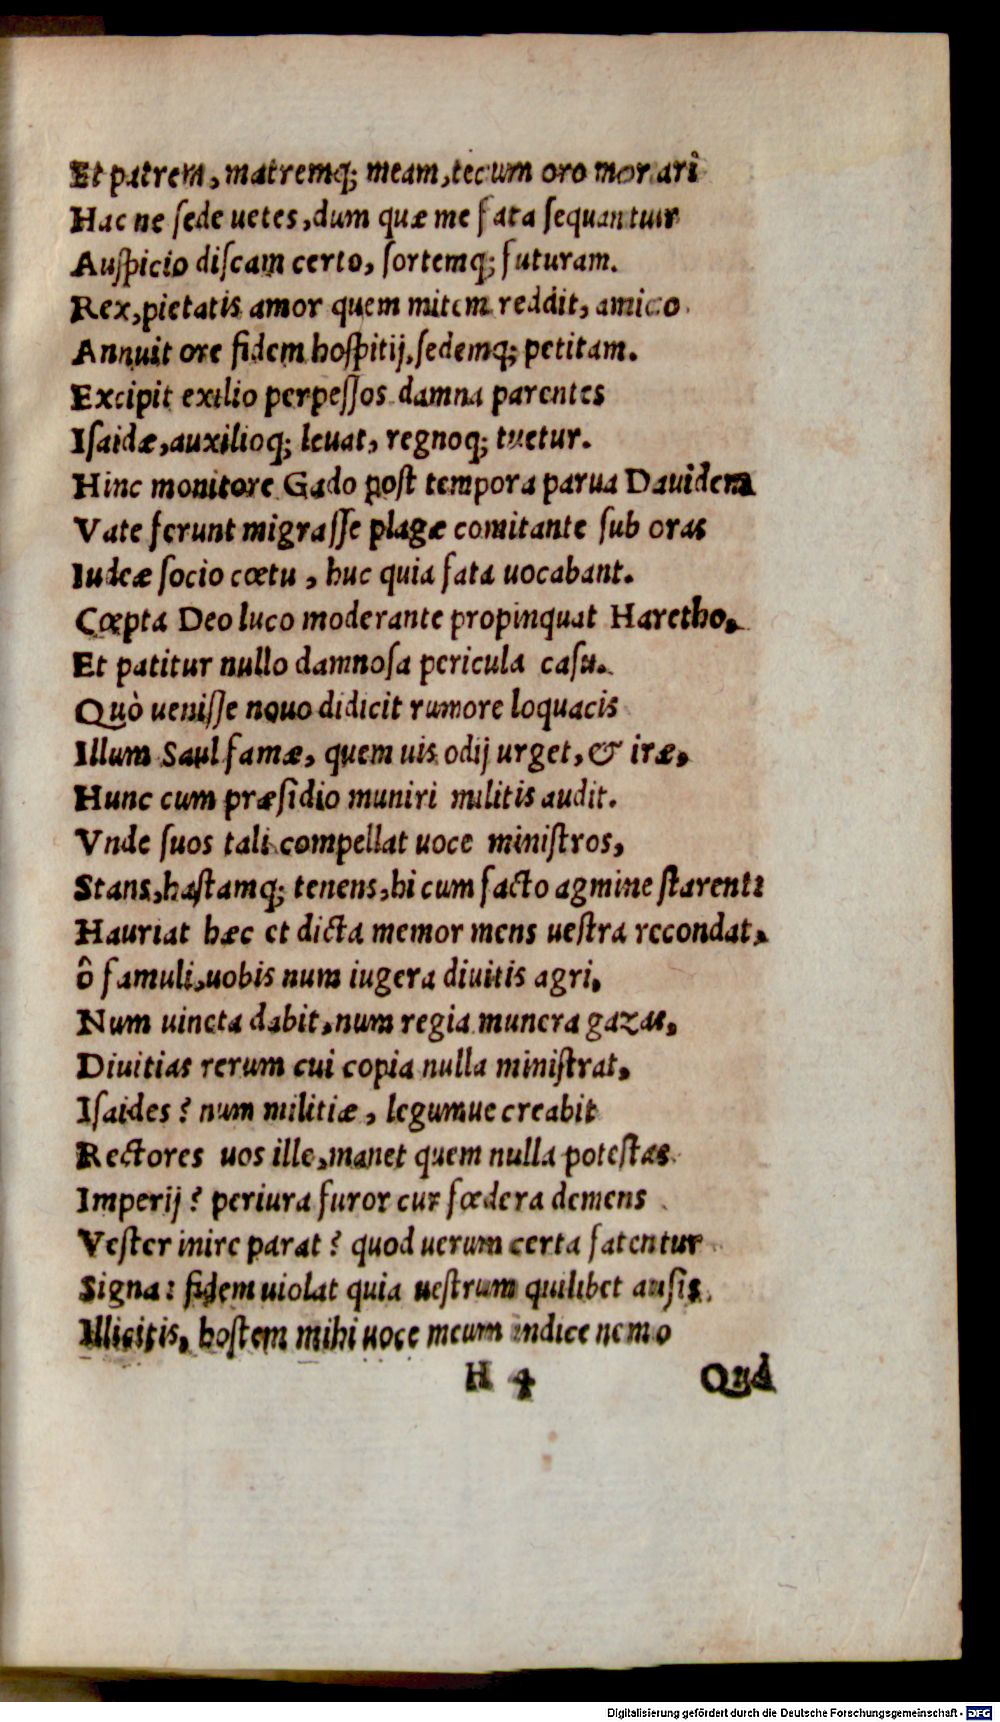 Et patrem, matremq; meam, tecum oro morari
Hac ne ſede uetes, dum quæ me fata ſequantur
Auſpicio diſcam certo, ſortemq; futuram.
Rex, pietatis amor quem mitem reddit, amico
Annuit ore fidem hoſpitij, ſedemq; petitam.
Excipit exilio perpeſſos damna parentes
Iſaidæ, auxilioq; leuat, regnoq; tuetur.
Hinc monitore Gado poſt tempora parua Dauidem
Vate ferunt migraſſe plagæ comitante ſub oras
Iudeæ ſocio cœtu, huc quia fata uocabant.
Cœpta Deo luco moderante propinquat Haretho,
Et patitur nullo damnoſa pericula caſu.
Quò ueniſſe nouo didicit rumore loquacis
Illum Saul famæ, quem uis odij urget, & iræ,
Hunc cum præſidio muniri militis audit.
Vnde ſuos tali compellat uoce miniſtros,
Stans, haſtamq; tenens, hi cum facto agmine ſtarent:
Hauriat hæc et dicta memor mens ueſtra recondat,
ô famuli, uobis num iugera diuitis agri,
Num uincta dabit, num regia munera gazas,
Diuitias rerum cui copia nulla miniſtrat,
Iſaides? num militiæ, legumue creabit
Rectores uos ille, manet quem nulla poteſtas
Imperij? periura furor cur fœdera demens
Veſter inire parat? quod uerum certa fatentur
Signa: fidem uiolat quia ueſtrum quilibet auſis
Illicitis, hoſtem mihi uoce meum indice nemo
H 4 Quà
Digitalisierung gefördert durch die Deutsche Forschungsgemeinschaft - DFG